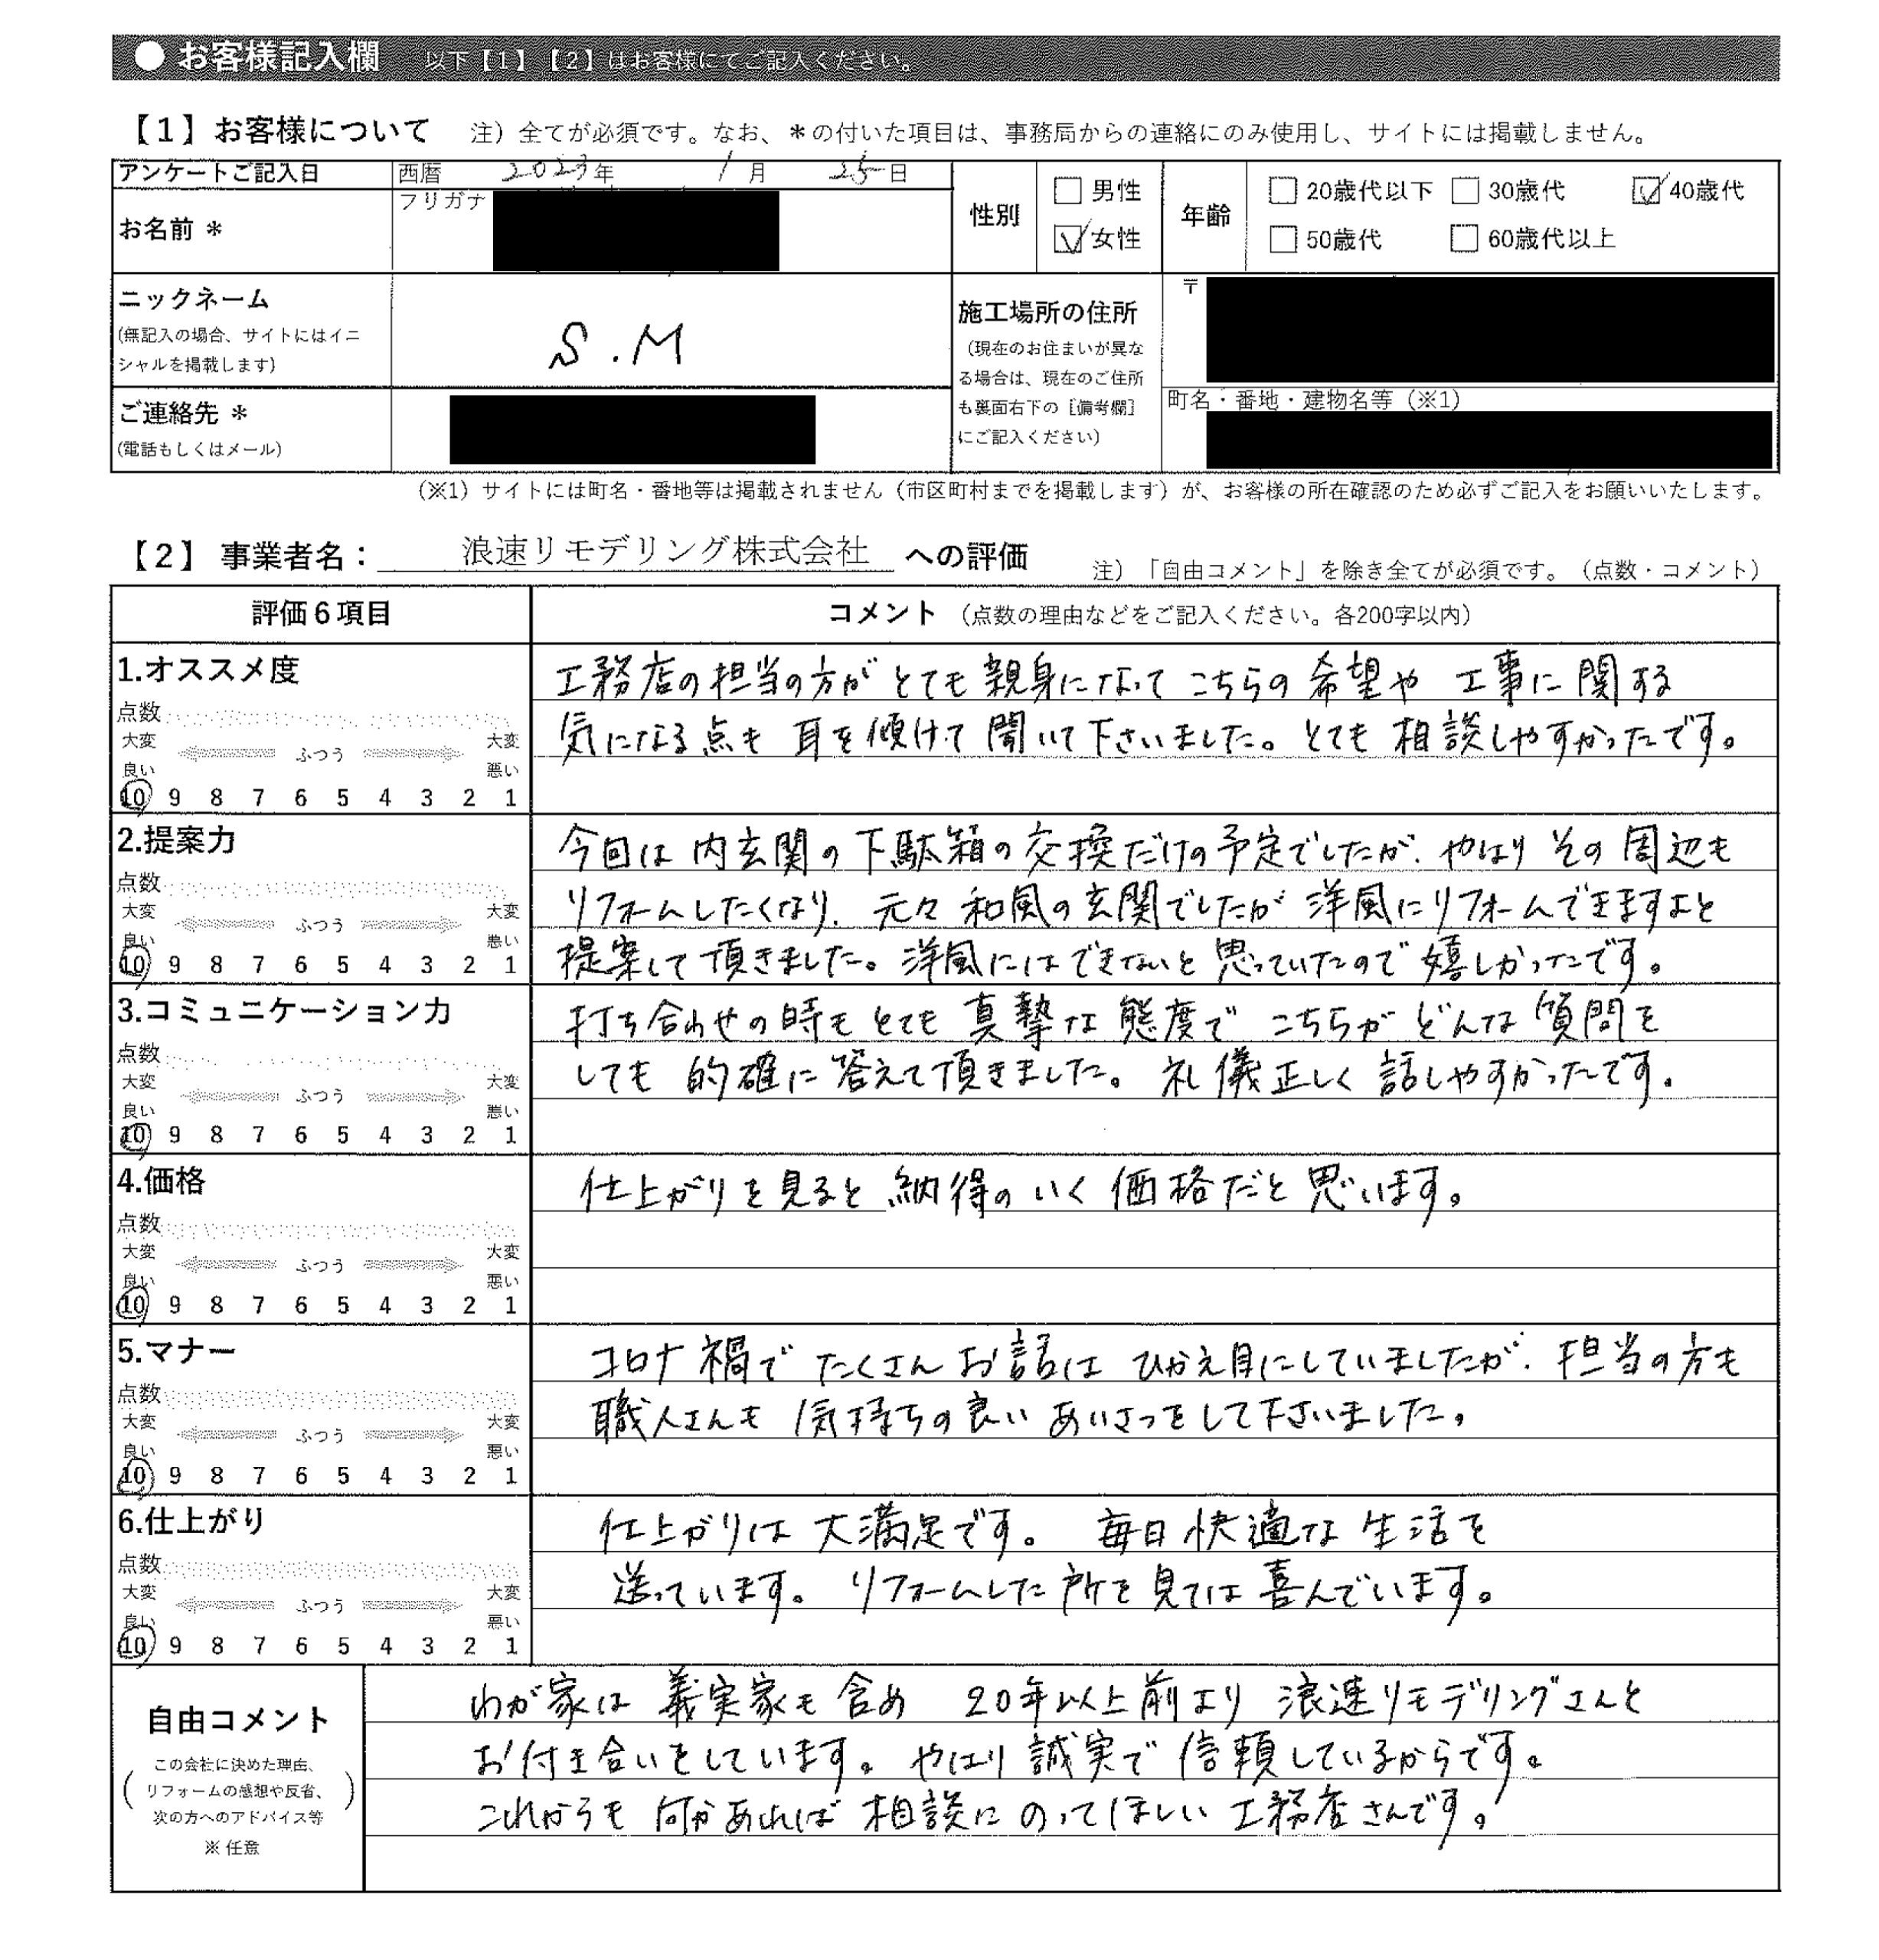 ● お客様記入欄 以下【1】【2】はお客様にてご記入ください。
【1】お客様について 注）全てが必須です。なお、＊の付いた項目は、事務局からの連絡にのみ使用し、サイトには掲載しません。
アンケートご記入日 西暦 2023年 1月 25日
お名前 ＊ フリガナ
性別 男性
女性
年齢 20歳代以下 30歳代 40歳代
50歳代 60歳代以上
ニックネーム
(無記入の場合、サイトにはイニ
シャルを掲載します)
S.M
ご連絡先 ＊
(電話もしくはメール)
施工場所の住所
（現在のお住まいが異な
る場合は、現在のご住所
も裏面右下の［備考欄］
にご記入ください）
〒
町名・番地・建物名等（※1）
（※1）サイトには町名・番地等は掲載されません（市区町村までを掲載します）が、お客様の所在確認のため必ずご記入をお願いいたします。
【2】 事業者名： 浪速リモデリング株式会社 への評価 注）「自由コメント」を除き全てが必須です。（点数・コメント）
評価６項目 コメント （点数の理由などをご記入ください。各200字以内）
1.オススメ度
点数
大変 ふつう 大変
良い 悪い
10 9 8 7 6 5 4 3 2 1
工務店の担当の方がとても親身になってこちらの希望や 工事に関する
気になる点も 耳を傾けて聞いて下さいました。とても相談しやすかったです。
2.提案力
点数
大変 ふつう 大変
良い 悪い
10 9 8 7 6 5 4 3 2 1
今回は内玄関の下駄箱の交換だけの予定でしたが、やはりその周辺も
リフォームしたくなり、元々和風の玄関でしたが洋風にリフォームできますよと
提案して頂きました。洋風にはできないと思っていたので嬉しかったです。
3.コミュニケーション力
点数
大変 ふつう 大変
良い 悪い
10 9 8 7 6 5 4 3 2 1
打ち合わせの時もとても真摯な態度でこちらがどんな質問を
しても的確に答えて頂きました。礼儀正しく話しやすかったです。
4.価格
点数
大変 ふつう 大変
良い 悪い
10 9 8 7 6 5 4 3 2 1
仕上がりを見ると納得のいく価格だと思います。
5.マナー
点数
大変 ふつう 大変
良い 悪い
10 9 8 7 6 5 4 3 2 1
コロナ禍でたくさんお話はひかえ目にしていましたが、担当の方も
職人さんも気持ちの良いあいさつをして下さいました。
6.仕上がり
点数
大変 ふつう 大変
良い 悪い
10 9 8 7 6 5 4 3 2 1
仕上がりは大満足です。 毎日快適な生活を
送っています。リフォームした所を見ては喜んでいます。
自由コメント
この会社に決めた理由、
リフォームの感想や反省、
次の方へのアドバイス等
※ 任意
わが家は義実家も含め 20年以上前より浪速リモデリングさんと
お付き合いをしています。やはり誠実で信頼しているからです。
これからも何かあれば相談にのってほしい工務店さんです。